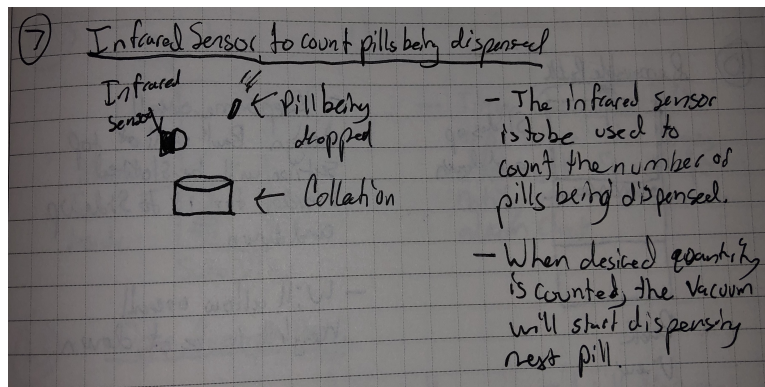 7
Infrared Sensor to count pills being dispensed
Infrared
Sensor
Pill being
dropped
Collation
- The infrared sensor
is to be used to
count the number of
pills being dispensed.
- When desired quantity
is counted, the vacuum
will start dispensing
next pill.